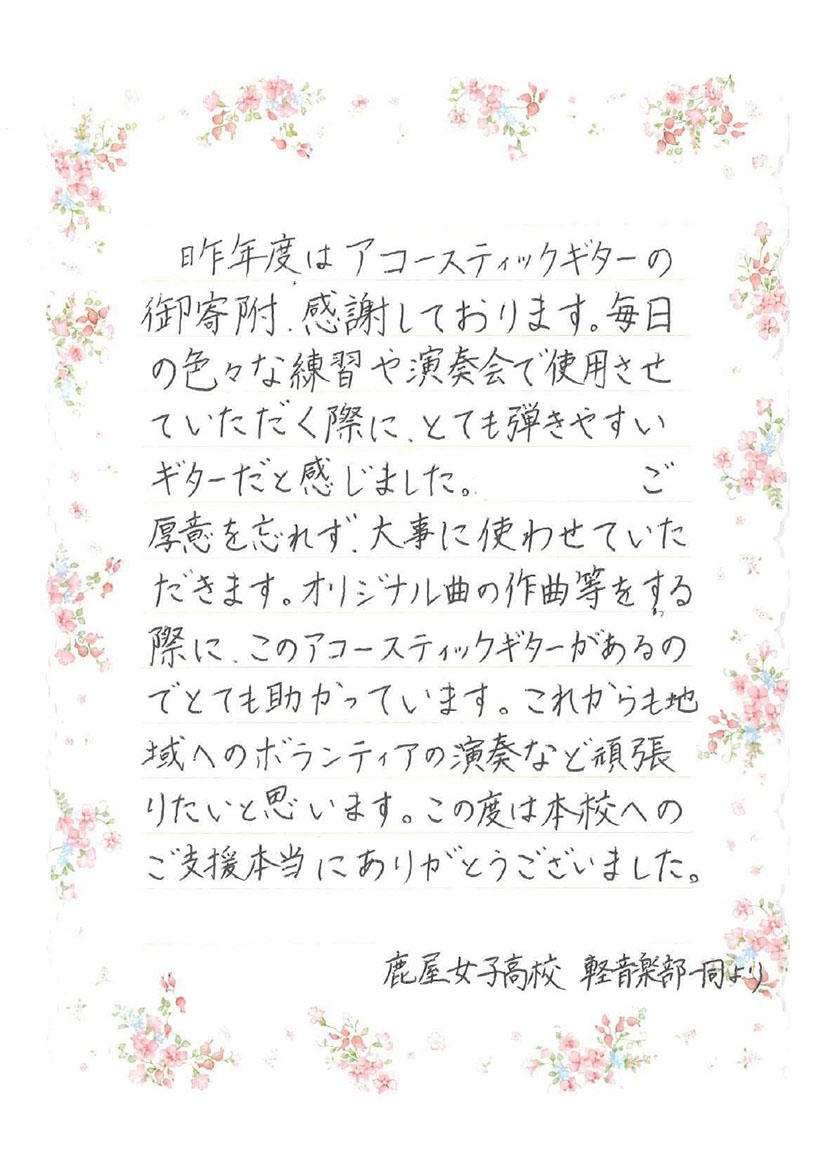 昨年度はアコースティックギターの
御寄附、感謝しております。毎日
の色々な練習や演奏会で使用させ
ていただく際に、とても弾きやすい
ギターだと感じました。 ご
厚意を忘れず、大事に使わせていた
だきます。オリジナル曲の作曲等をする
際に、このアコースティックギターがあるの
でとても助かっています。これからも地
域へのボランティアの演奏など頑張
りたいと思います。この度は本校への
ご支援本当にありがとうございました。
鹿屋女子高校 軽音楽部一同より